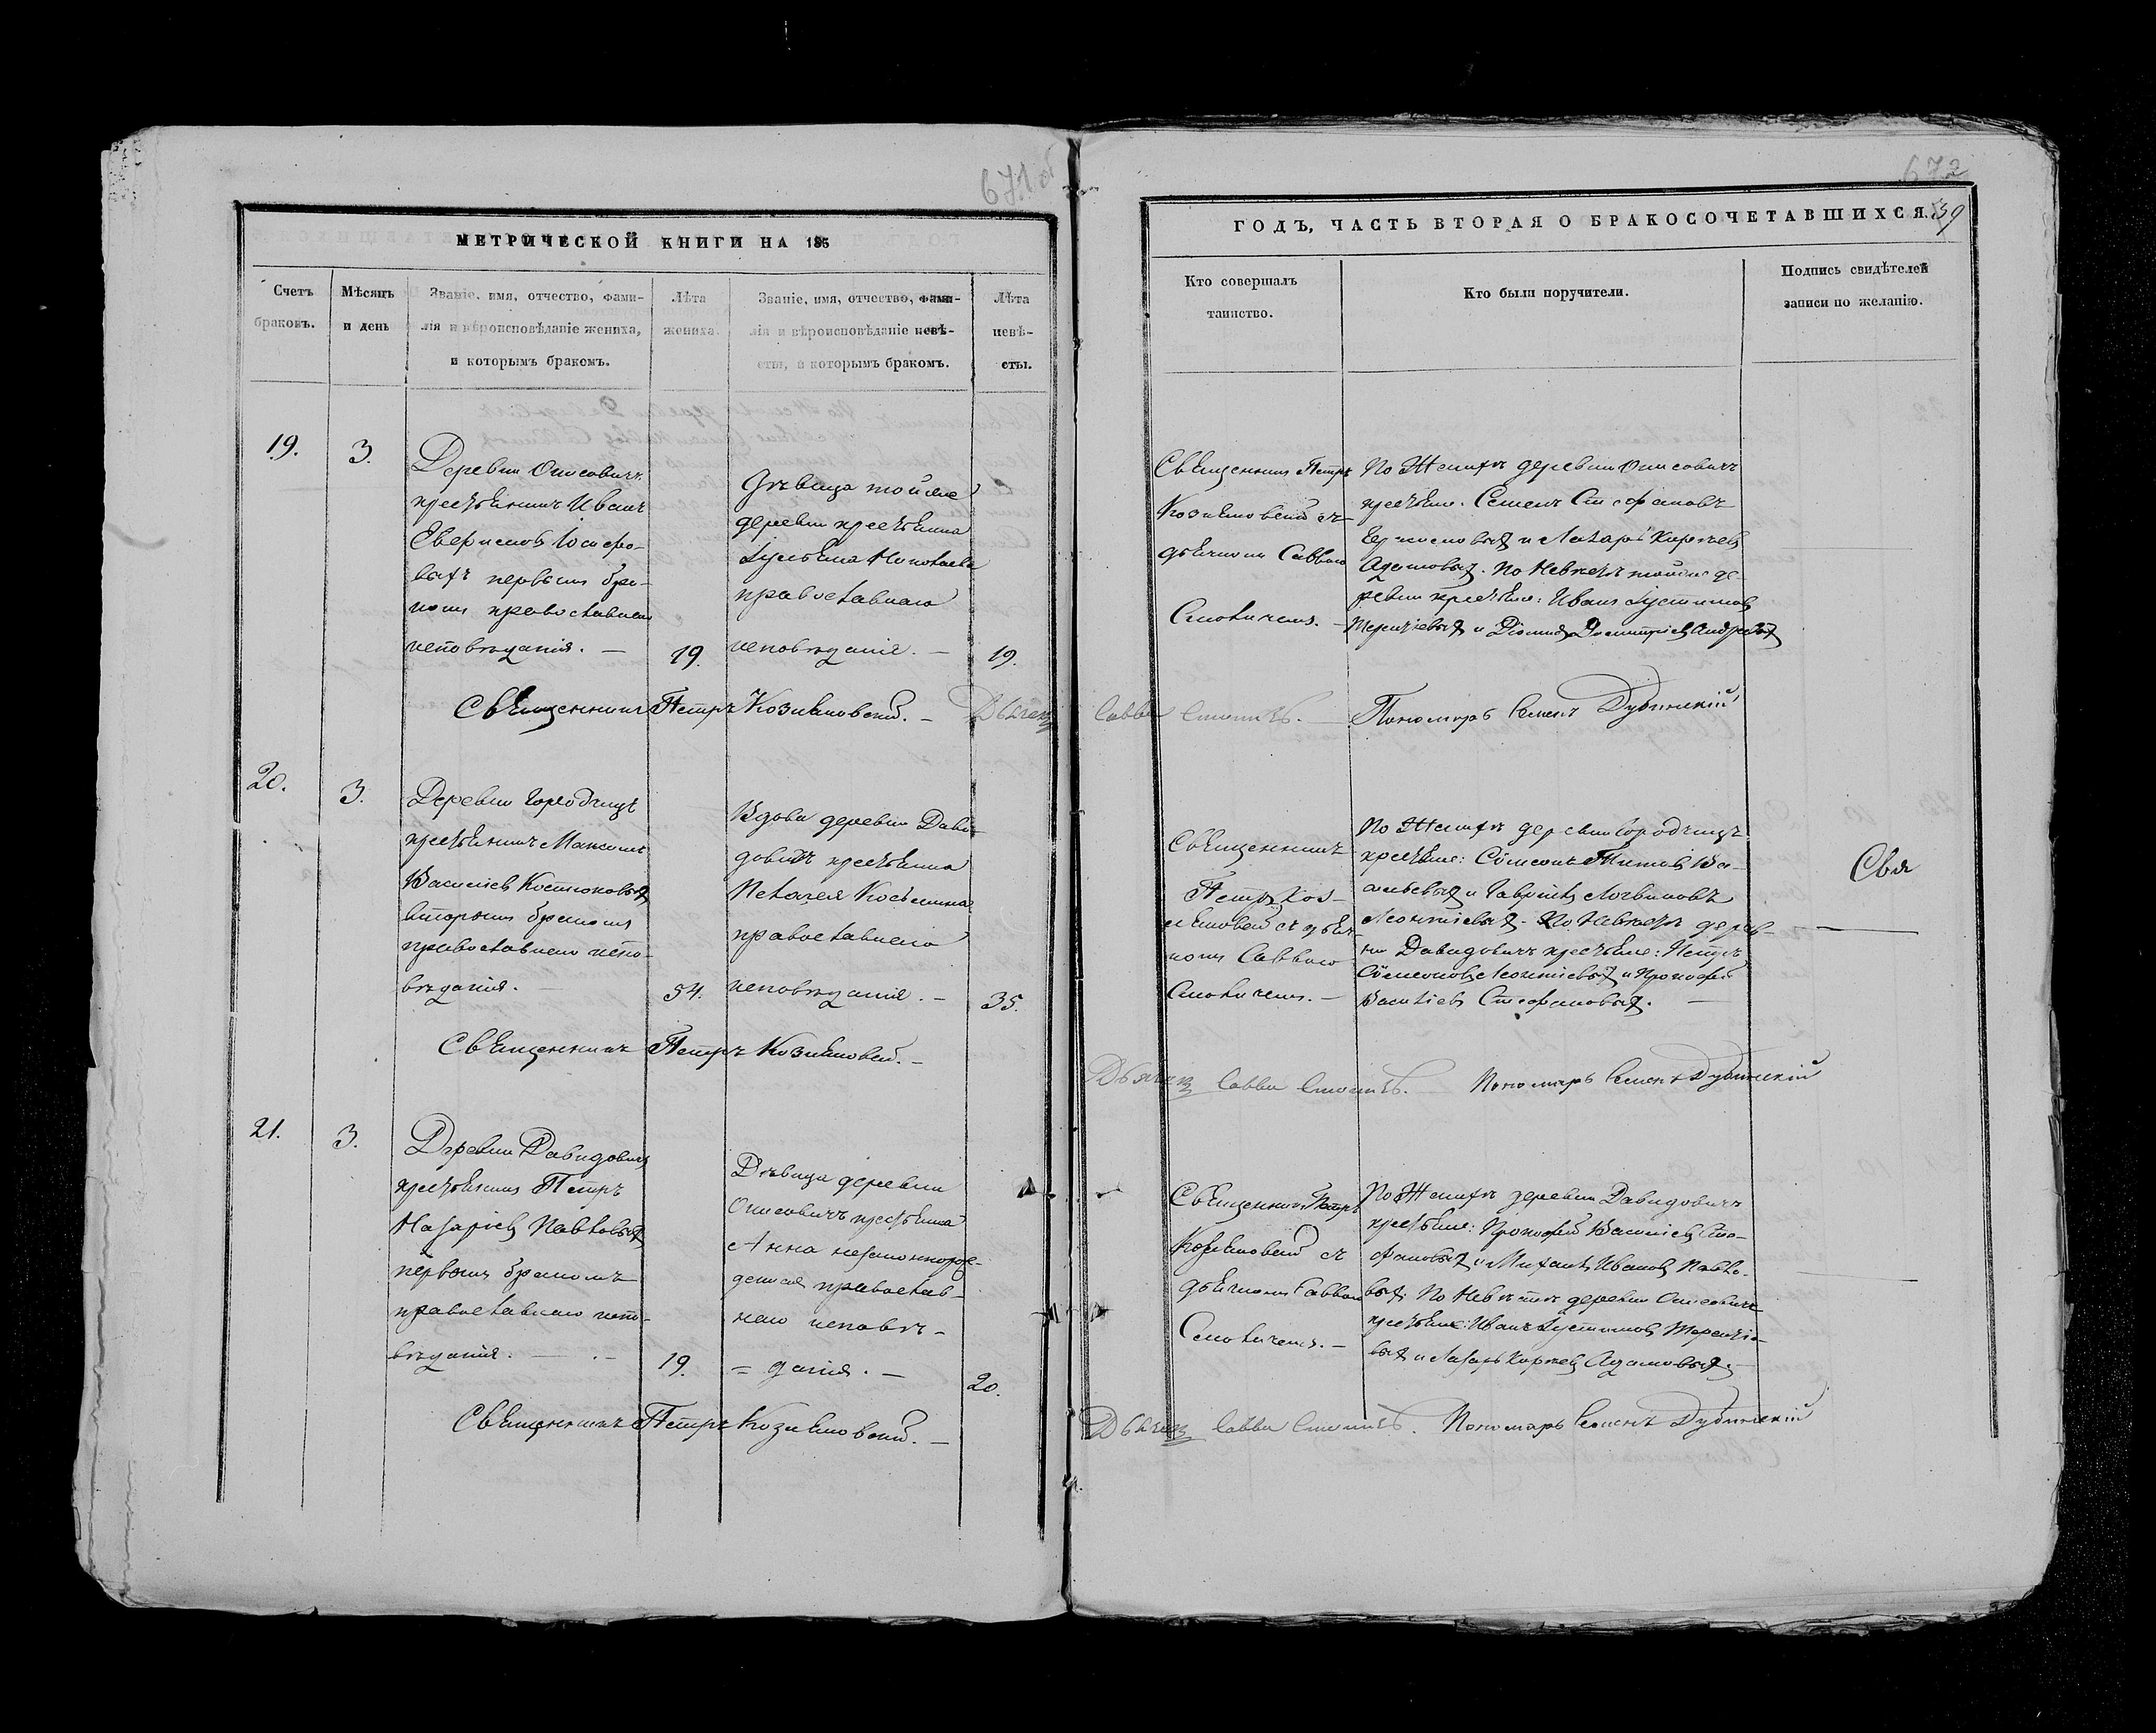 671 об
МЕТРИЧЕСКОЙ КНИГИ НА 185
Счетъ браковъ.
Мѣсяцъ и день
Званіе, имя, отчество, фами-
лія и вѣроисповѣданіе жениха,
и которымъ бракомъ.
Лѣта жениха.
Званіе, имя, отчество, фами-
лія и вѣроисповѣданіе невѣ-
сты, и которымъ бракомъ.
Лѣта невѣ-
сты.
19.
3.
Деревни Описовичъ
крестьянинъ Иванъ
первымъ бра-
комъ православнаго
исповѣданія. —
19.
Дѣвица той же
деревни крестьянка
православнаго
исповѣданія. —
19.
Священникъ Петръ —
Дьячекъ
20.
3.
Деревни Городчицъ
крестьянинъ Максимъ
Васильевъ Костюковыхъ
вторымъ бракомъ
православнаго испо-
вѣданія.
54.
Вдова деревни Дави-
довичъ крестьянка
Пелагея Косьмина
православнаго
исповѣданія. —
35.
Священникъ Петръ —
21.
3.
Деревни Давидовичъ
крестьянинъ Петръ
Назаріевъ Павловыхъ
первымъ бракомъ
православнаго испо-
вѣданія. —
19.
Дѣвица деревни
Описовичъ крестьянка
Анна незаконнорож-
денная православ-
наго исповѣ-
= данія. —
20.
Священникъ Петръ —
672
ГОДЪ, ЧАСТЬ ВТОРАЯ О БРАКОСОЧЕТАВШИХСЯ.
39
Кто совершалъ
таинство.
Кто были поручители.
Подпись свидѣтелей
записи по желанію.
Священникъ Петръ
съ
дьячкомъ Саввою
По Женихѣ деревни Описовичъ
крестьяне: Семенъ Стефановъ
и Лазарь Карпевъ
Адамовыхъ. По Невѣстѣ той же де-
ревни крестьяне: Иванъ Іустиновъ
Терентьевыхъ и Дмитріевъ
Савва Пономарь Семенъ Дубинскій
Священникъ
Петръ
съ дьяч-
комъ Саввою
По Женихѣ деревни Городчицъ
крестьяне: Сѵмеонъ Титовъ Ва-
сильевыхъ и Гавріилъ Логвиновъ
Леонтіевыхъ. По Невѣстѣ дерев-
ни Давидовичъ крестьяне: Петръ
Сѵмеоновъ Леонтіевыхъ и Прокофій
Васильевъ Стефановыхъ. —
Свя
Дьячекъ Савва Пономарь Семенъ Дубинскій
Священникъ Петръ
съ
дьячкомъ Саввою
По Женихѣ деревни Давидовичъ
крестьяне: Прокофій Васильевъ Сте-
фановыхъ и Михаилъ Ивановъ Павло-
выхъ. По Невѣстѣ деревни Описовичъ
крестьяне: Иванъ Іустиновъ Терентіе-
выхъ и Лазарь Карпевъ Адамовыхъ.
Дьячекъ Савва Пономарь Семенъ Дубинскій